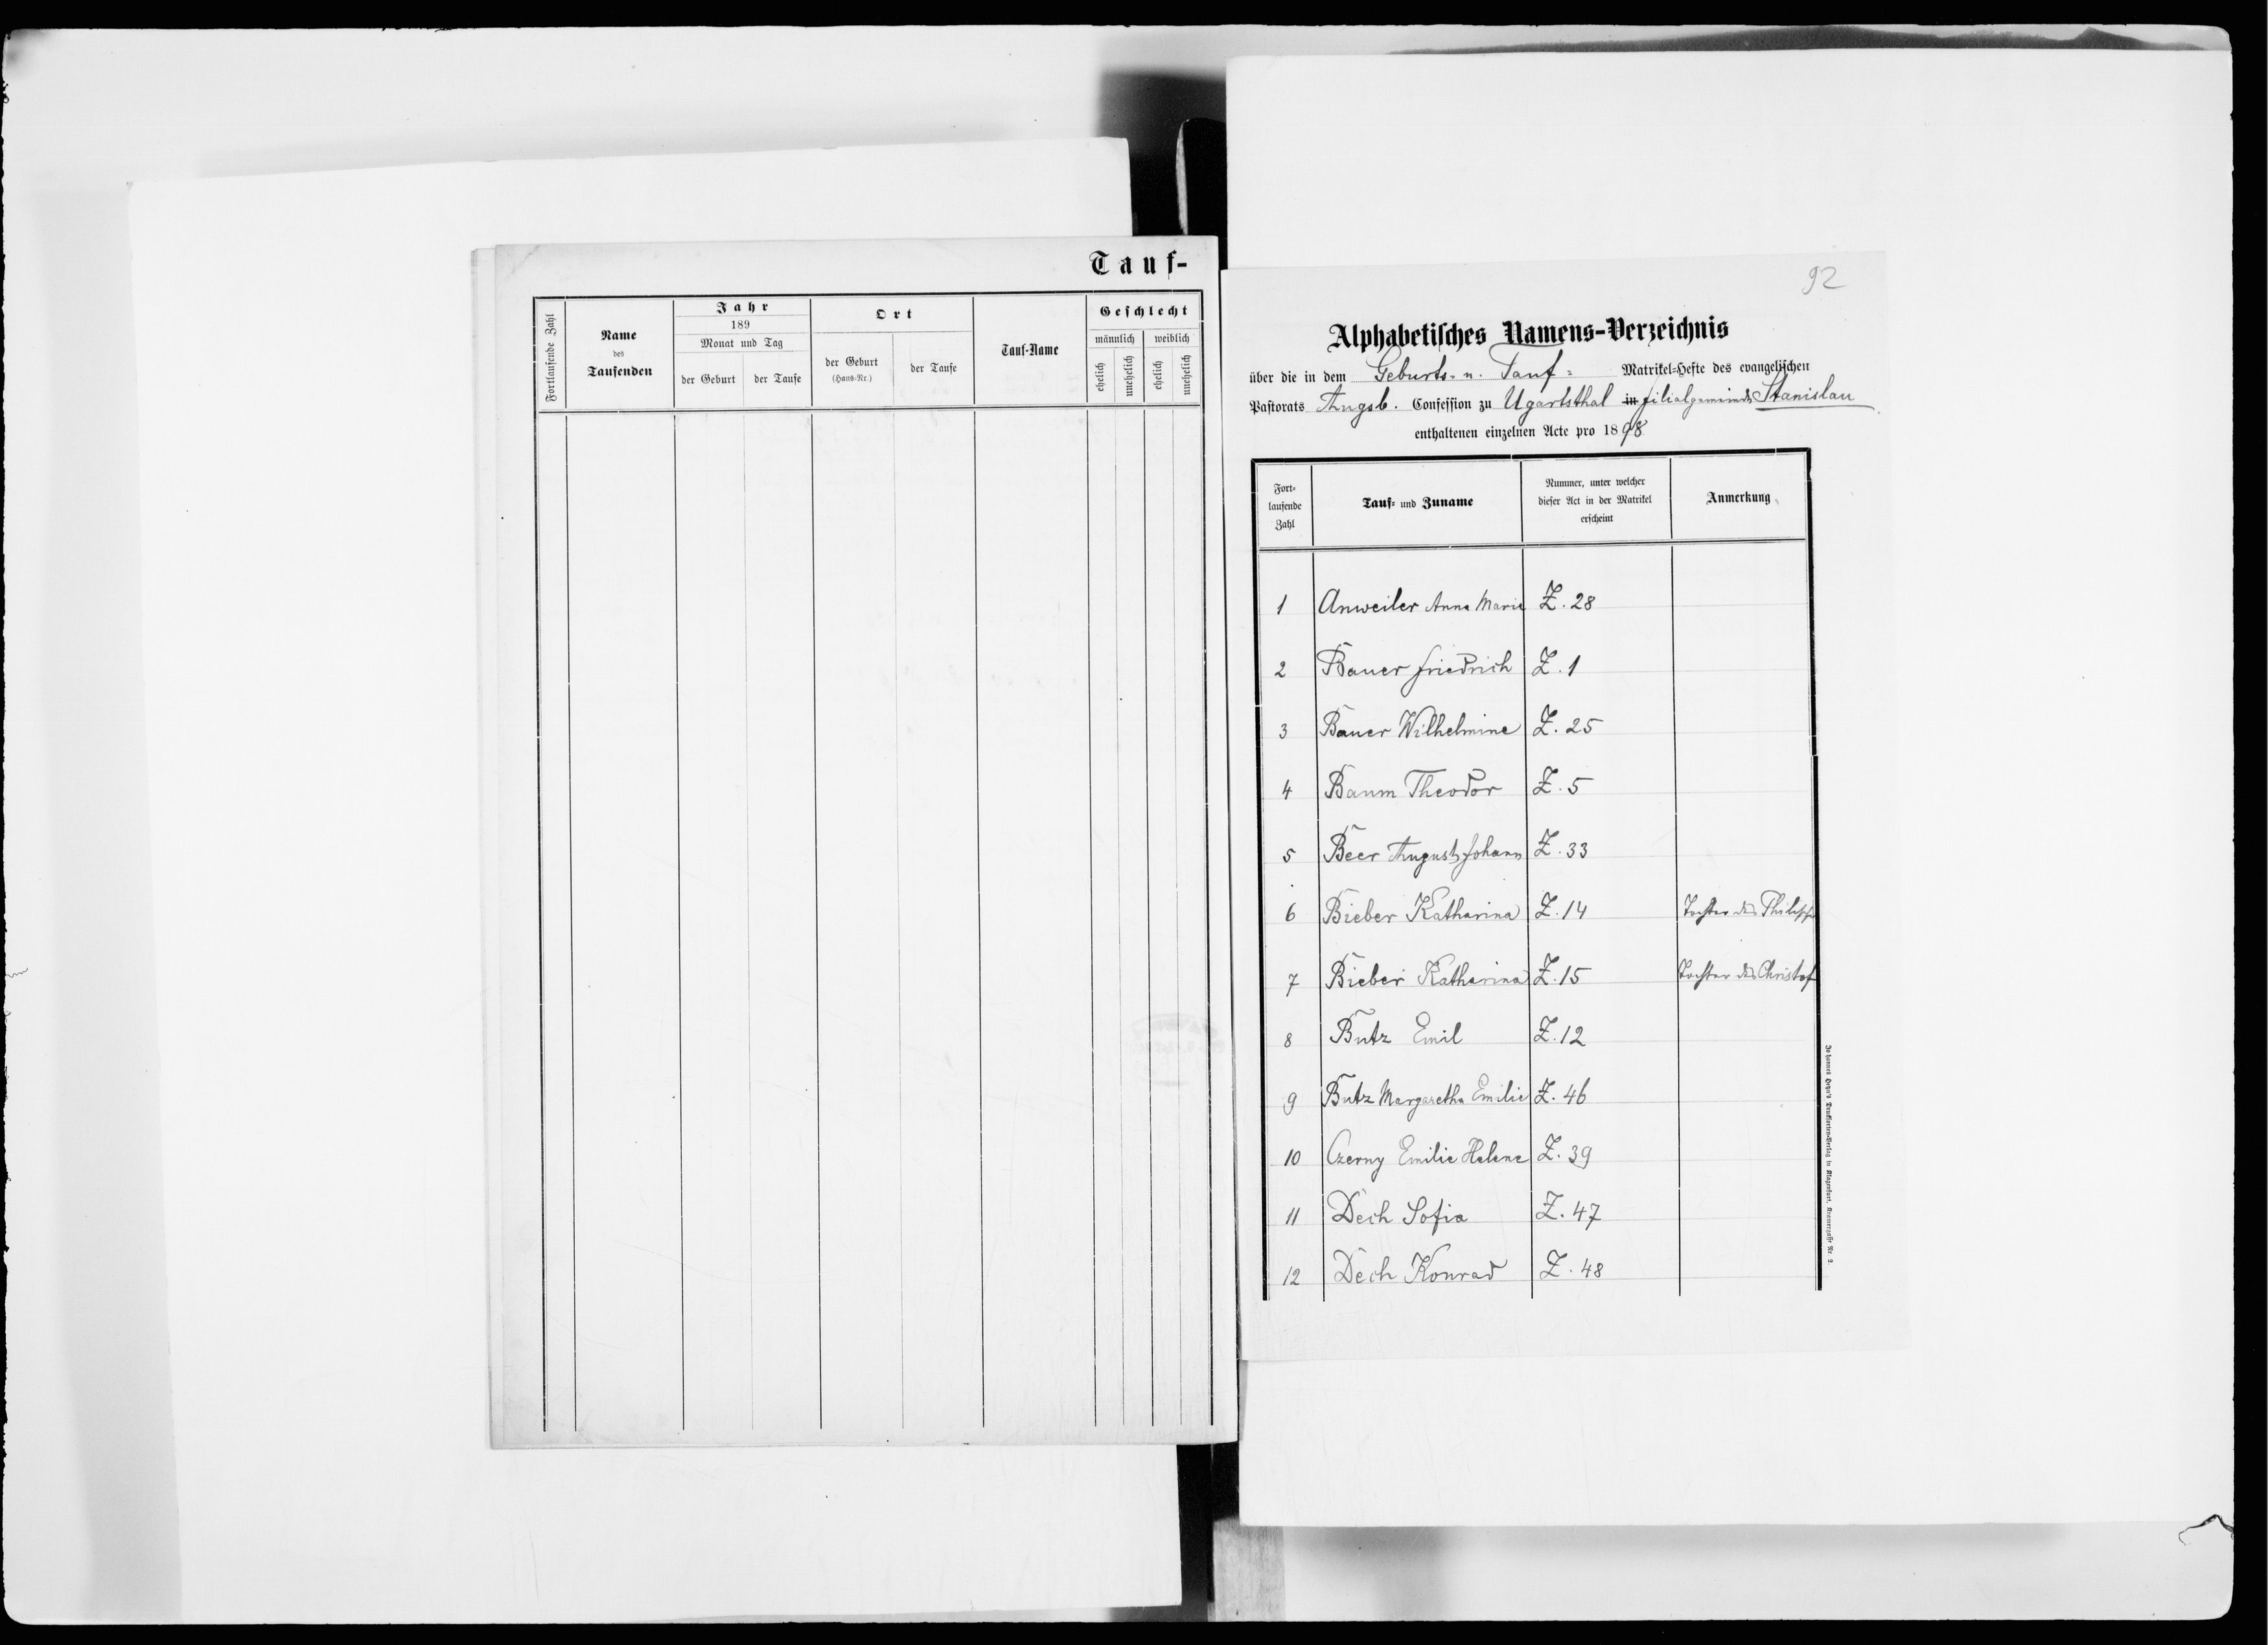 Tauf-
Fortlaufende Zahl
Name
des
Taufenden
Jahr
189
Monat und Tag
der Geburt
der Taufe
Ort
der Geburt
(Haus-Nr.)
der Taufe
Tauf-Name
Geschlecht
männlich weiblich
ehelich
unehelich
ehelich
unehelich
92
Alphabetisches Namens-Verzeichnis
über die in dem Geburts- u. Tauf- Matrikel-Hefte des evangelischen
Pastorats Augsb. Confession zu Ugartsthal in Filialgemeinde Stanislau
enthaltenen einzelnen Acte pro 1898
Fort-
laufende
Zahl
Tauf- und Zuname
Nummer, unter welcher
dieser Act in der Matrikel
erscheint
Anmerkung
1 Anweiler Anna Marie Z. 28
2 Bauer Friedrich Z. 1
3 Bauer Wilhelmine Z. 25
4 Baum Theodor Z. 5
5 Beer August Johann Z. 33
6 Bieber Katharina Z. 14 Tochter des Philipp
7 Bieber Katharina Z. 15 Tochter des Christof
8 Butz Emil Z. 12
9 Butz Margaretha Emilie Z. 46
10 Czerny Emilie Helene Z. 39
11 Dech Sofia Z. 47
12 Dech Konrad Z. 48
Johannes Heyn's Drucksorten-Verlag in Klagenfurt, Kramergasse Nr. 9.